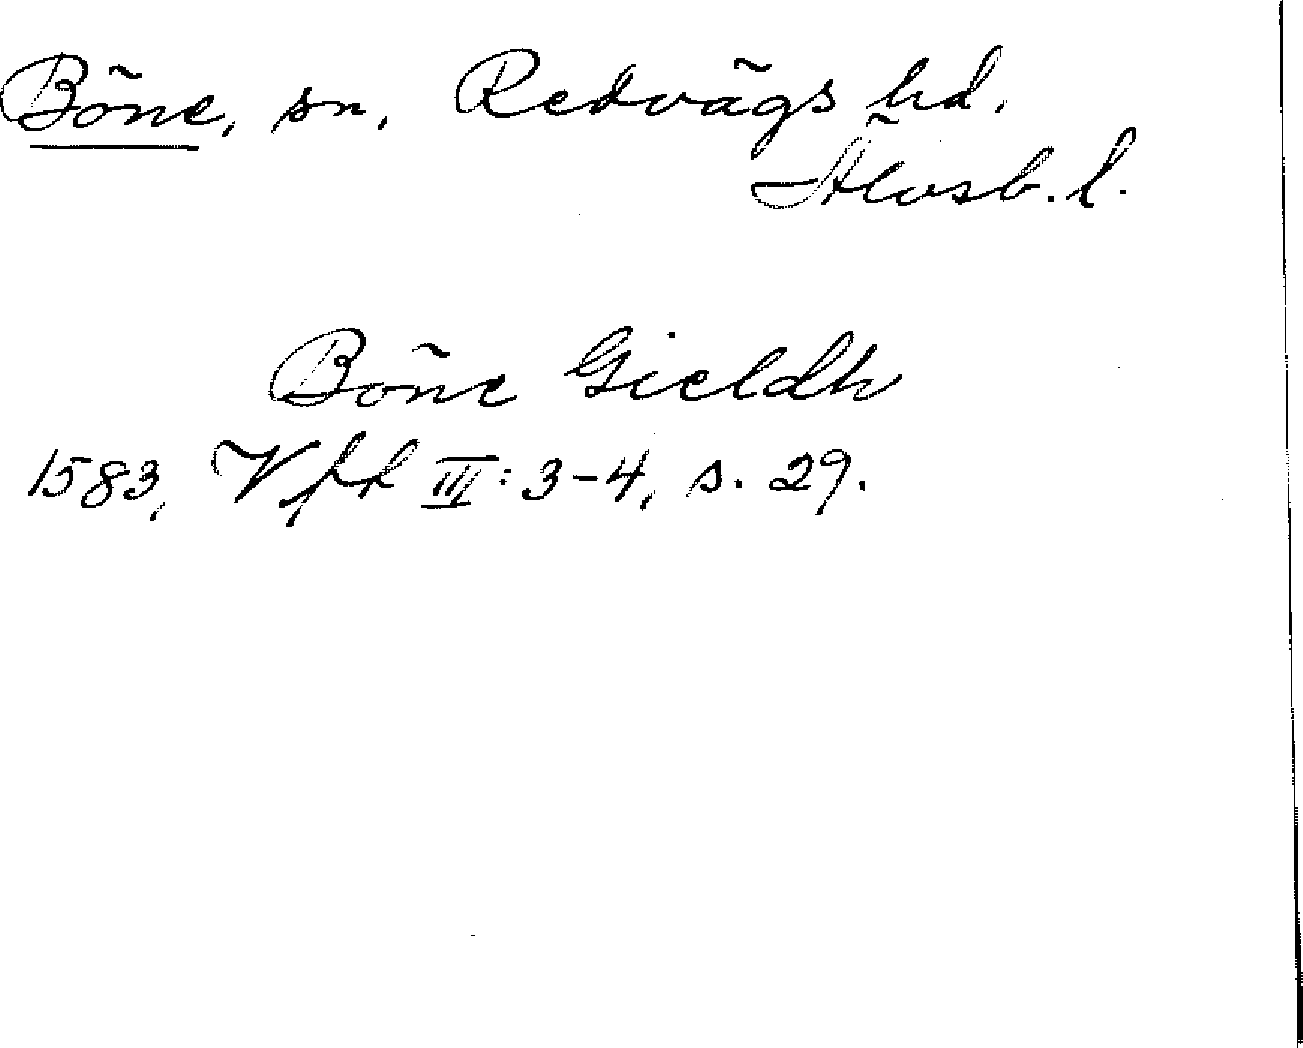 Böne, sn, Redvägs hd.
Älvsb. l.
Böne Gieldh
1583, Vfpl III: 3-4, s. 29.